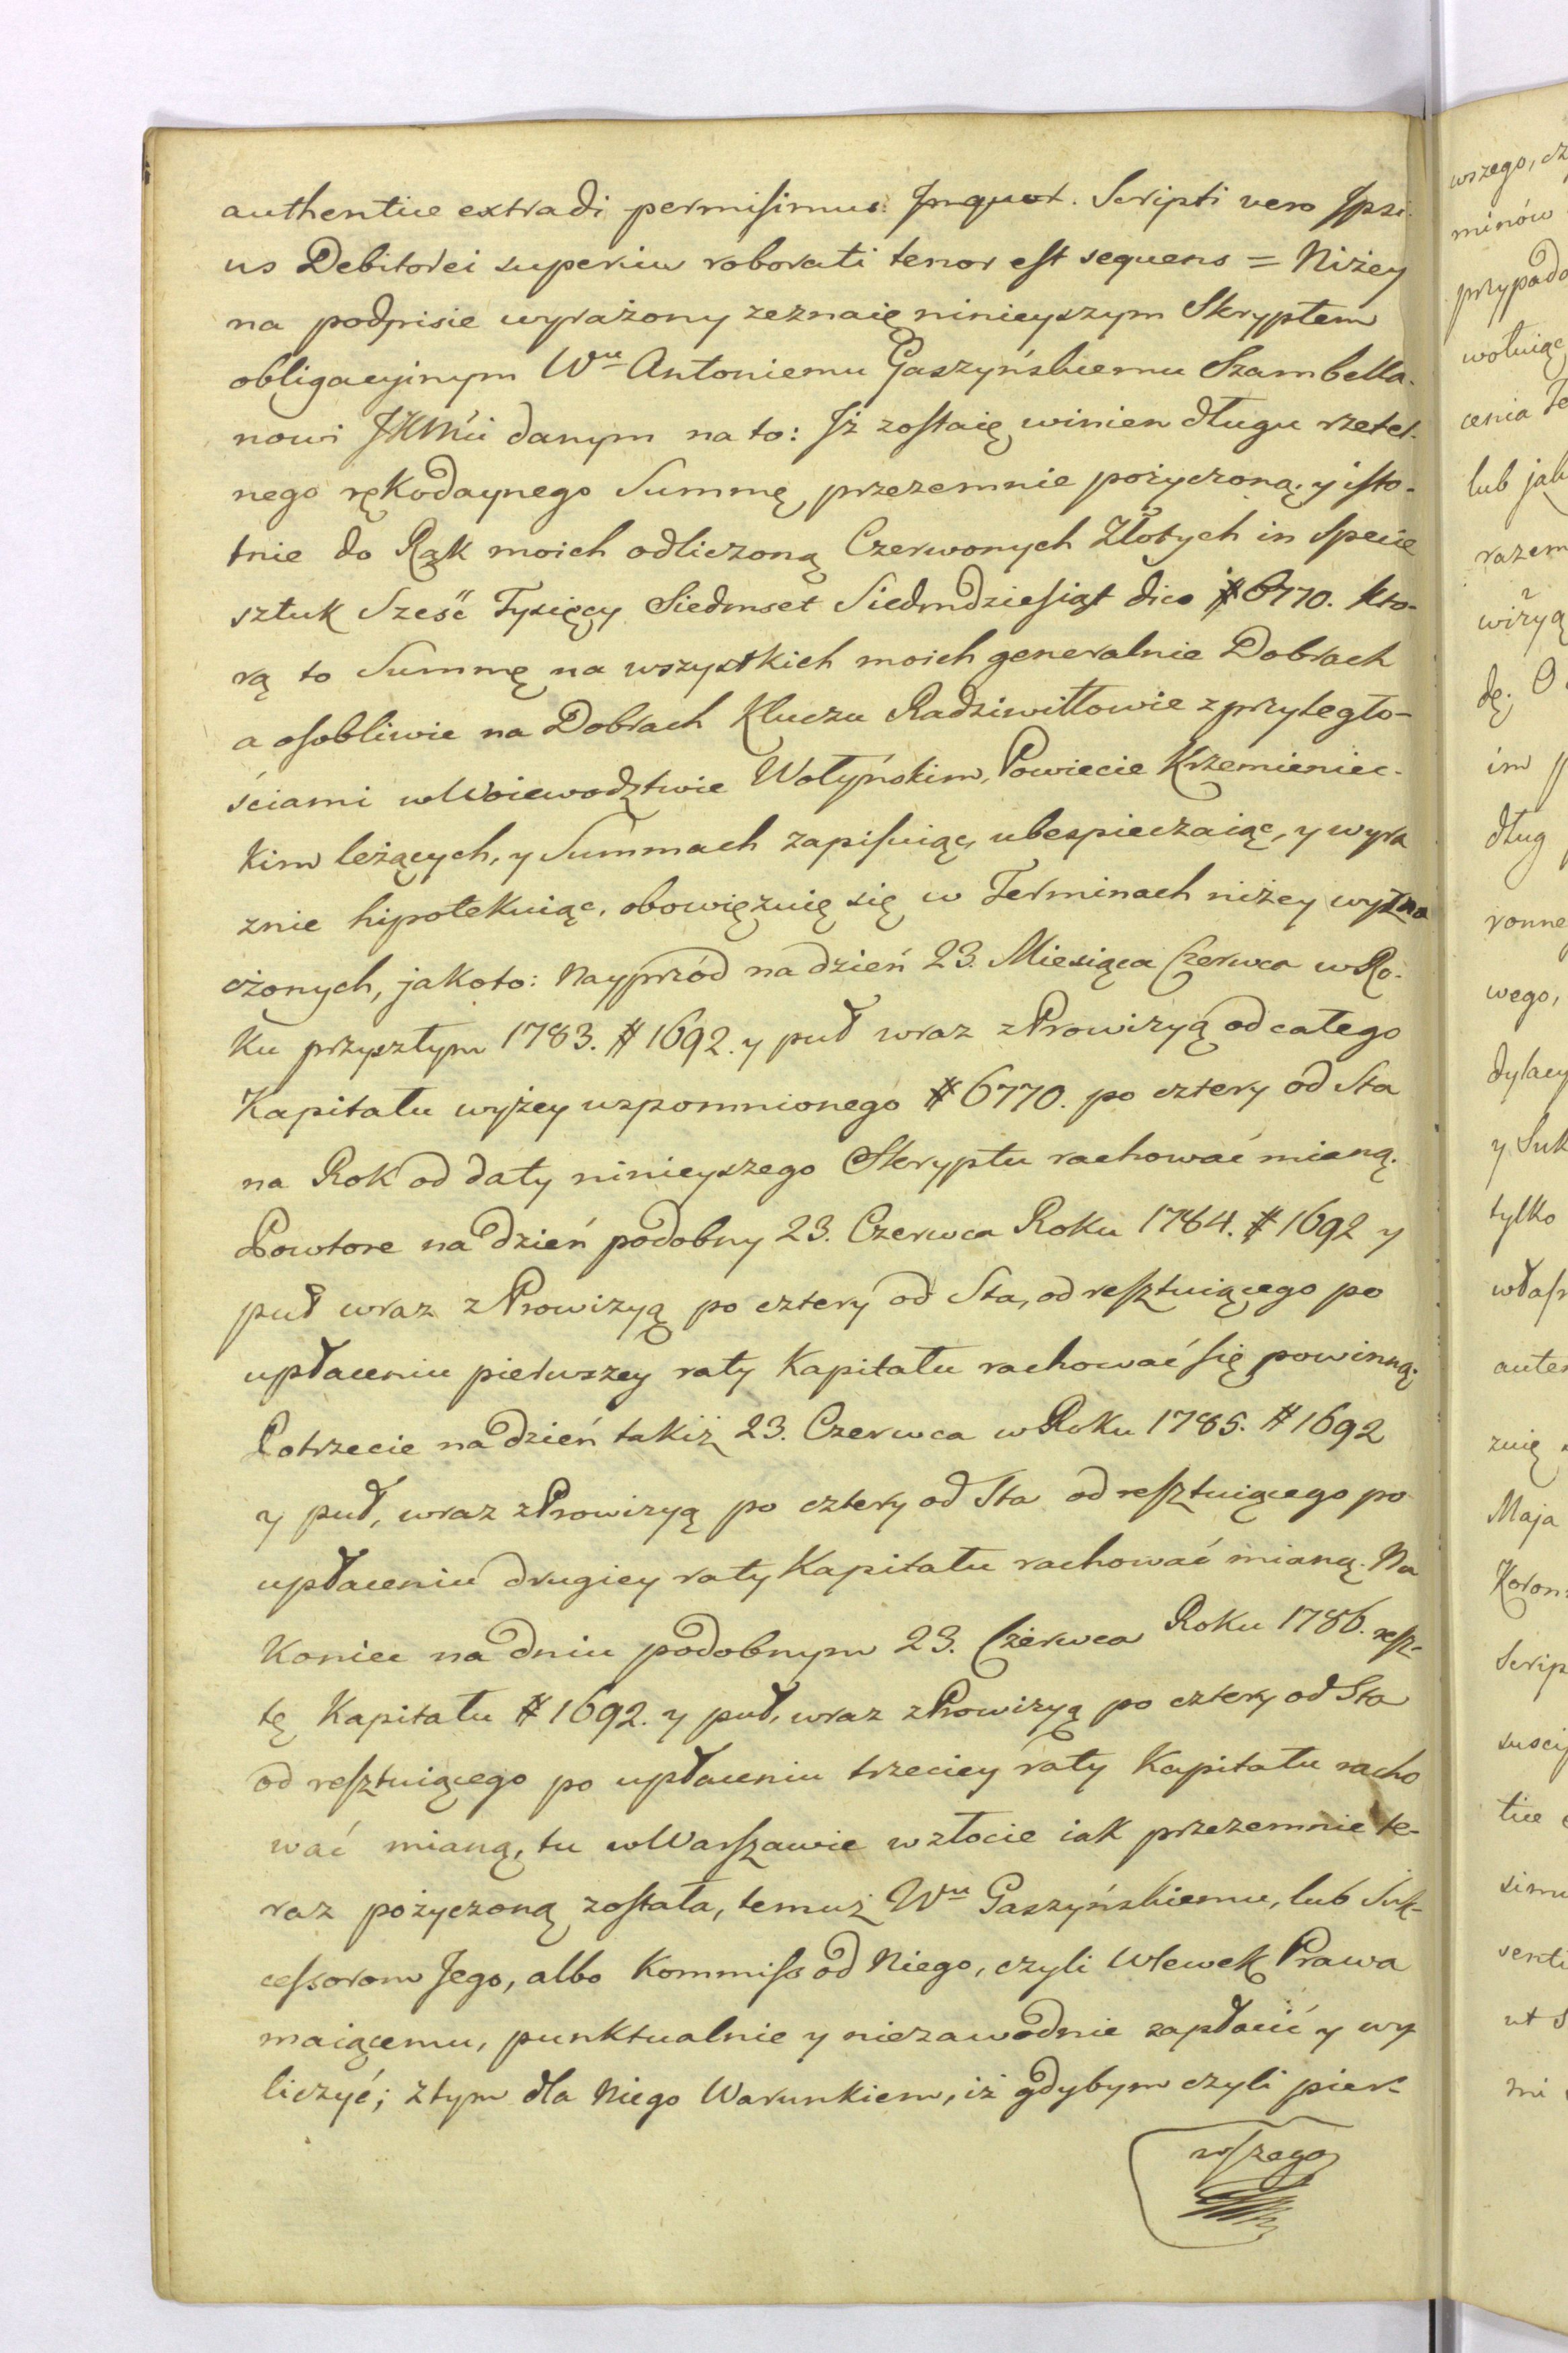 authentice extradi permisimus. Inquor. Scripti vero Ipsi
us Debitorei superius roborati tenor est sequens = Niżey
na podpisie wyrażony zeznaię ninieyszym Skryptem
obligacyinym Wu Antoniemu Gaszyńskiemu Szambella-
nowi JKMći danym na to: Iż zostaię winien długu rzetel-
nego rękodaynego Summę przezemnie pożyczoną y isto-
tnie do Rąk moich odliczoną Czerwonych Złotych in Specie
sztuk Sześć Tysięcy Siedmset Siedmdziesiąt dico # 6770. kto-
rą to Summę na wszystkich moich generalnie Dobrach
a osobliwie na Dobrach Klucza Radziwiłłowie z przyległo-
ściami w Woiewodztwie Wołyńskim, Powiecie Krzemieniec-
kim leżących, y Summach zapisuiąc, ubespieczaiąc, y wyra
znie hipotekuiąc, obowięzuię się w Terminach niżey wyzna
czonych, jakoto: Nayprzód na dzień 23. Miesiąca Czerwca w Ro-
ku przyszłym 1783. # 1692. y puł wraz z Prowizyą od całego
Kapitału wyżey wspomnionego # 6770. po cztery od Sta
na Rok od daty ninieyszego Skryptu rachować mianą.
Powtore na dzień podobny 23. Czerwca Roku 1784. # 1692 y
puł wraz z Prowizyą po cztery od Sta, od resztuiącego po
upłaceniu pierwszey raty Kapitału rachować się powinną.
Potrzecie na dzień takiż 23. Czerwca w Roku 1785. # 1692
y puł, wraz z Prowizyą po cztery od Sta od resztuiącego po
upłaceniu drugiey raty Kapitału rachować mianą. Na
Koniec na dniu podobnym 23. Czerwca Roku 1786. resz-
tę Kapitału # 1692. y puł, wraz z Prowizyą po cztery od Sta
od resztuiącego po upłaceniu trzeciey raty Kapitału racho
wać mianą, tu w Warszawie w złocie iak przezemnie te-
raz pożyczoną została, temuż Wu Gaszyńskiemu, lub Suk-
cessorom Jego, albo Kommiss od Niego, czyli Wlewek Prawa
maiącemu, punktualnie y niezawodnie zapłacić y wy
liczyć; z tym dla Niego Warunkiem, iż gdybym czyli pier-
wszego
wszego, cz
minów
przypad
wolniąc
cenia
lub jak
razem
wizyą
dę; O
im p
dług
ronne
wego,
dylacy
y Suk
tylko
własn
auten
znię
Maja
Koron
Scrip
suscip
tice
simu
senti
ut s
mi